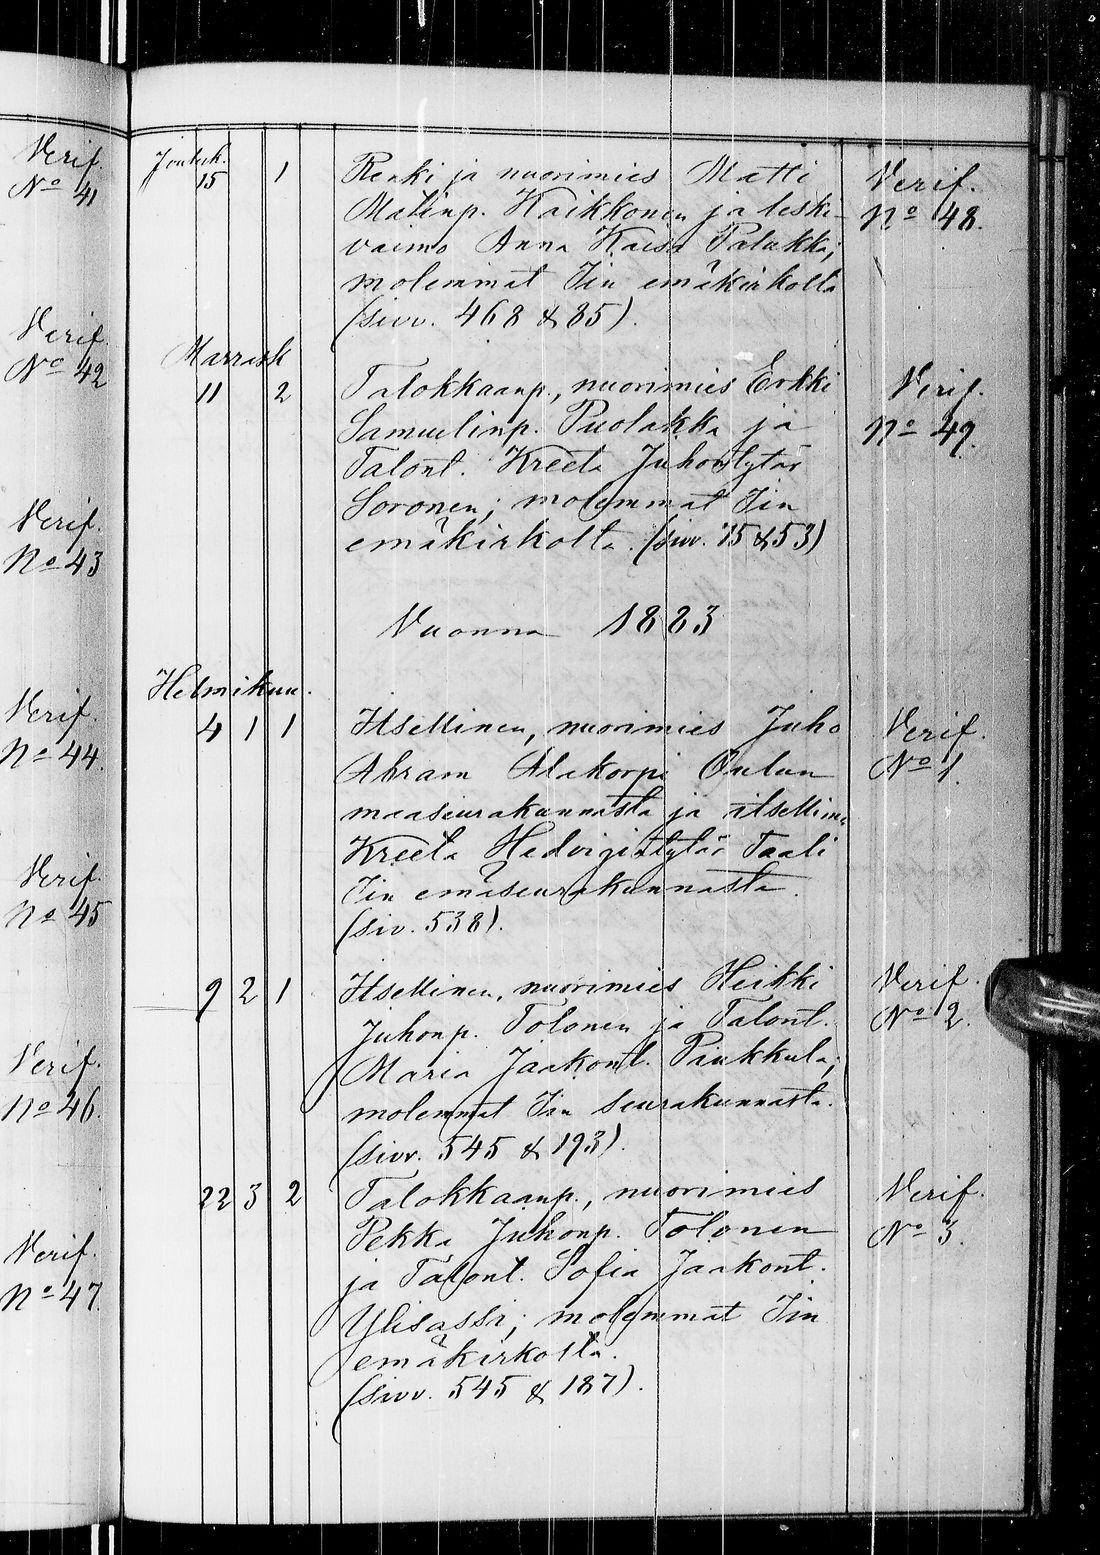 Verif.
No 41
Verif.
No 42
Verif.
No 43
Verif.
No 44.
Verif.
No 45
Verif.
No 46.
Verif.
No 47
Jouluk.
15 1 Renki ja nuorimies Matti Verif.
Matinp. Haikkonen ja leski- No 48.
vaimo Anna Kaisa Palukka;
molemmat Iin emäkirkolta
(sivv. 468 & 85).
Marrask
11 2 Talokkaanp., nuorimies Erkki Verif.
Samuelinp. Puolakka ja No 49.
Talont. Kreeta Juhontytär
Soronen; molemmat Iin
emäkirkolta. (sivv. 75 & 53)
Vuonna 1883
Helmikuu.
4 1 1 Itsellinen, nuorimies Juho Verif.
Abram Alakorpi Oulun No 1.
maaseurakunnasta ja itsellinen
Kreeta Hedvigintytär Taali
Iin emäseurakunnasta.
(siv. 538).
9 2 1 Itsellinen, nuorimies Heikki Verif.
Juhonp. Tolonen ja Talont. No 2.
Maria Jaakont. Paukkula;
molemmat Iin seurakunnasta.
(sivv. 545 & 193).
22 3 2 Talokkaanp., nuorimies Verif.
Pekka Juhonp. Tolonen No 3.
ja Talont. Sofia Jaakont.
Ylisassi; molemmat Iin
emäkirkolta.
(sivv. 545 & 187).